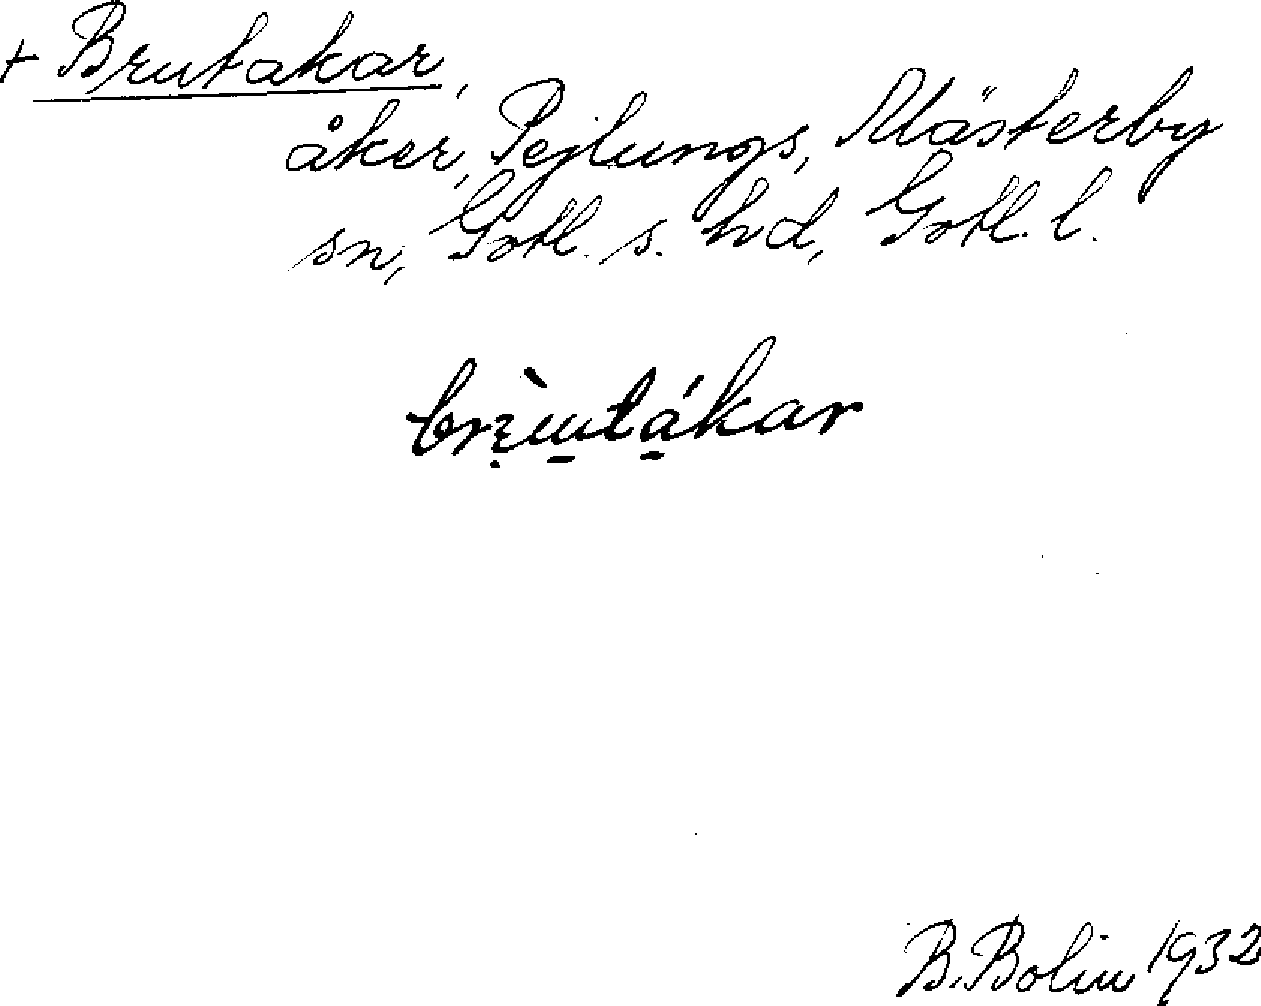 + Brutakar,
åker, Pejlungs, Mästerby
sn, Gotl. s. hd, Gotl. l.
brɛ̣̀u̠tá̠kar
B. Bolin 1932